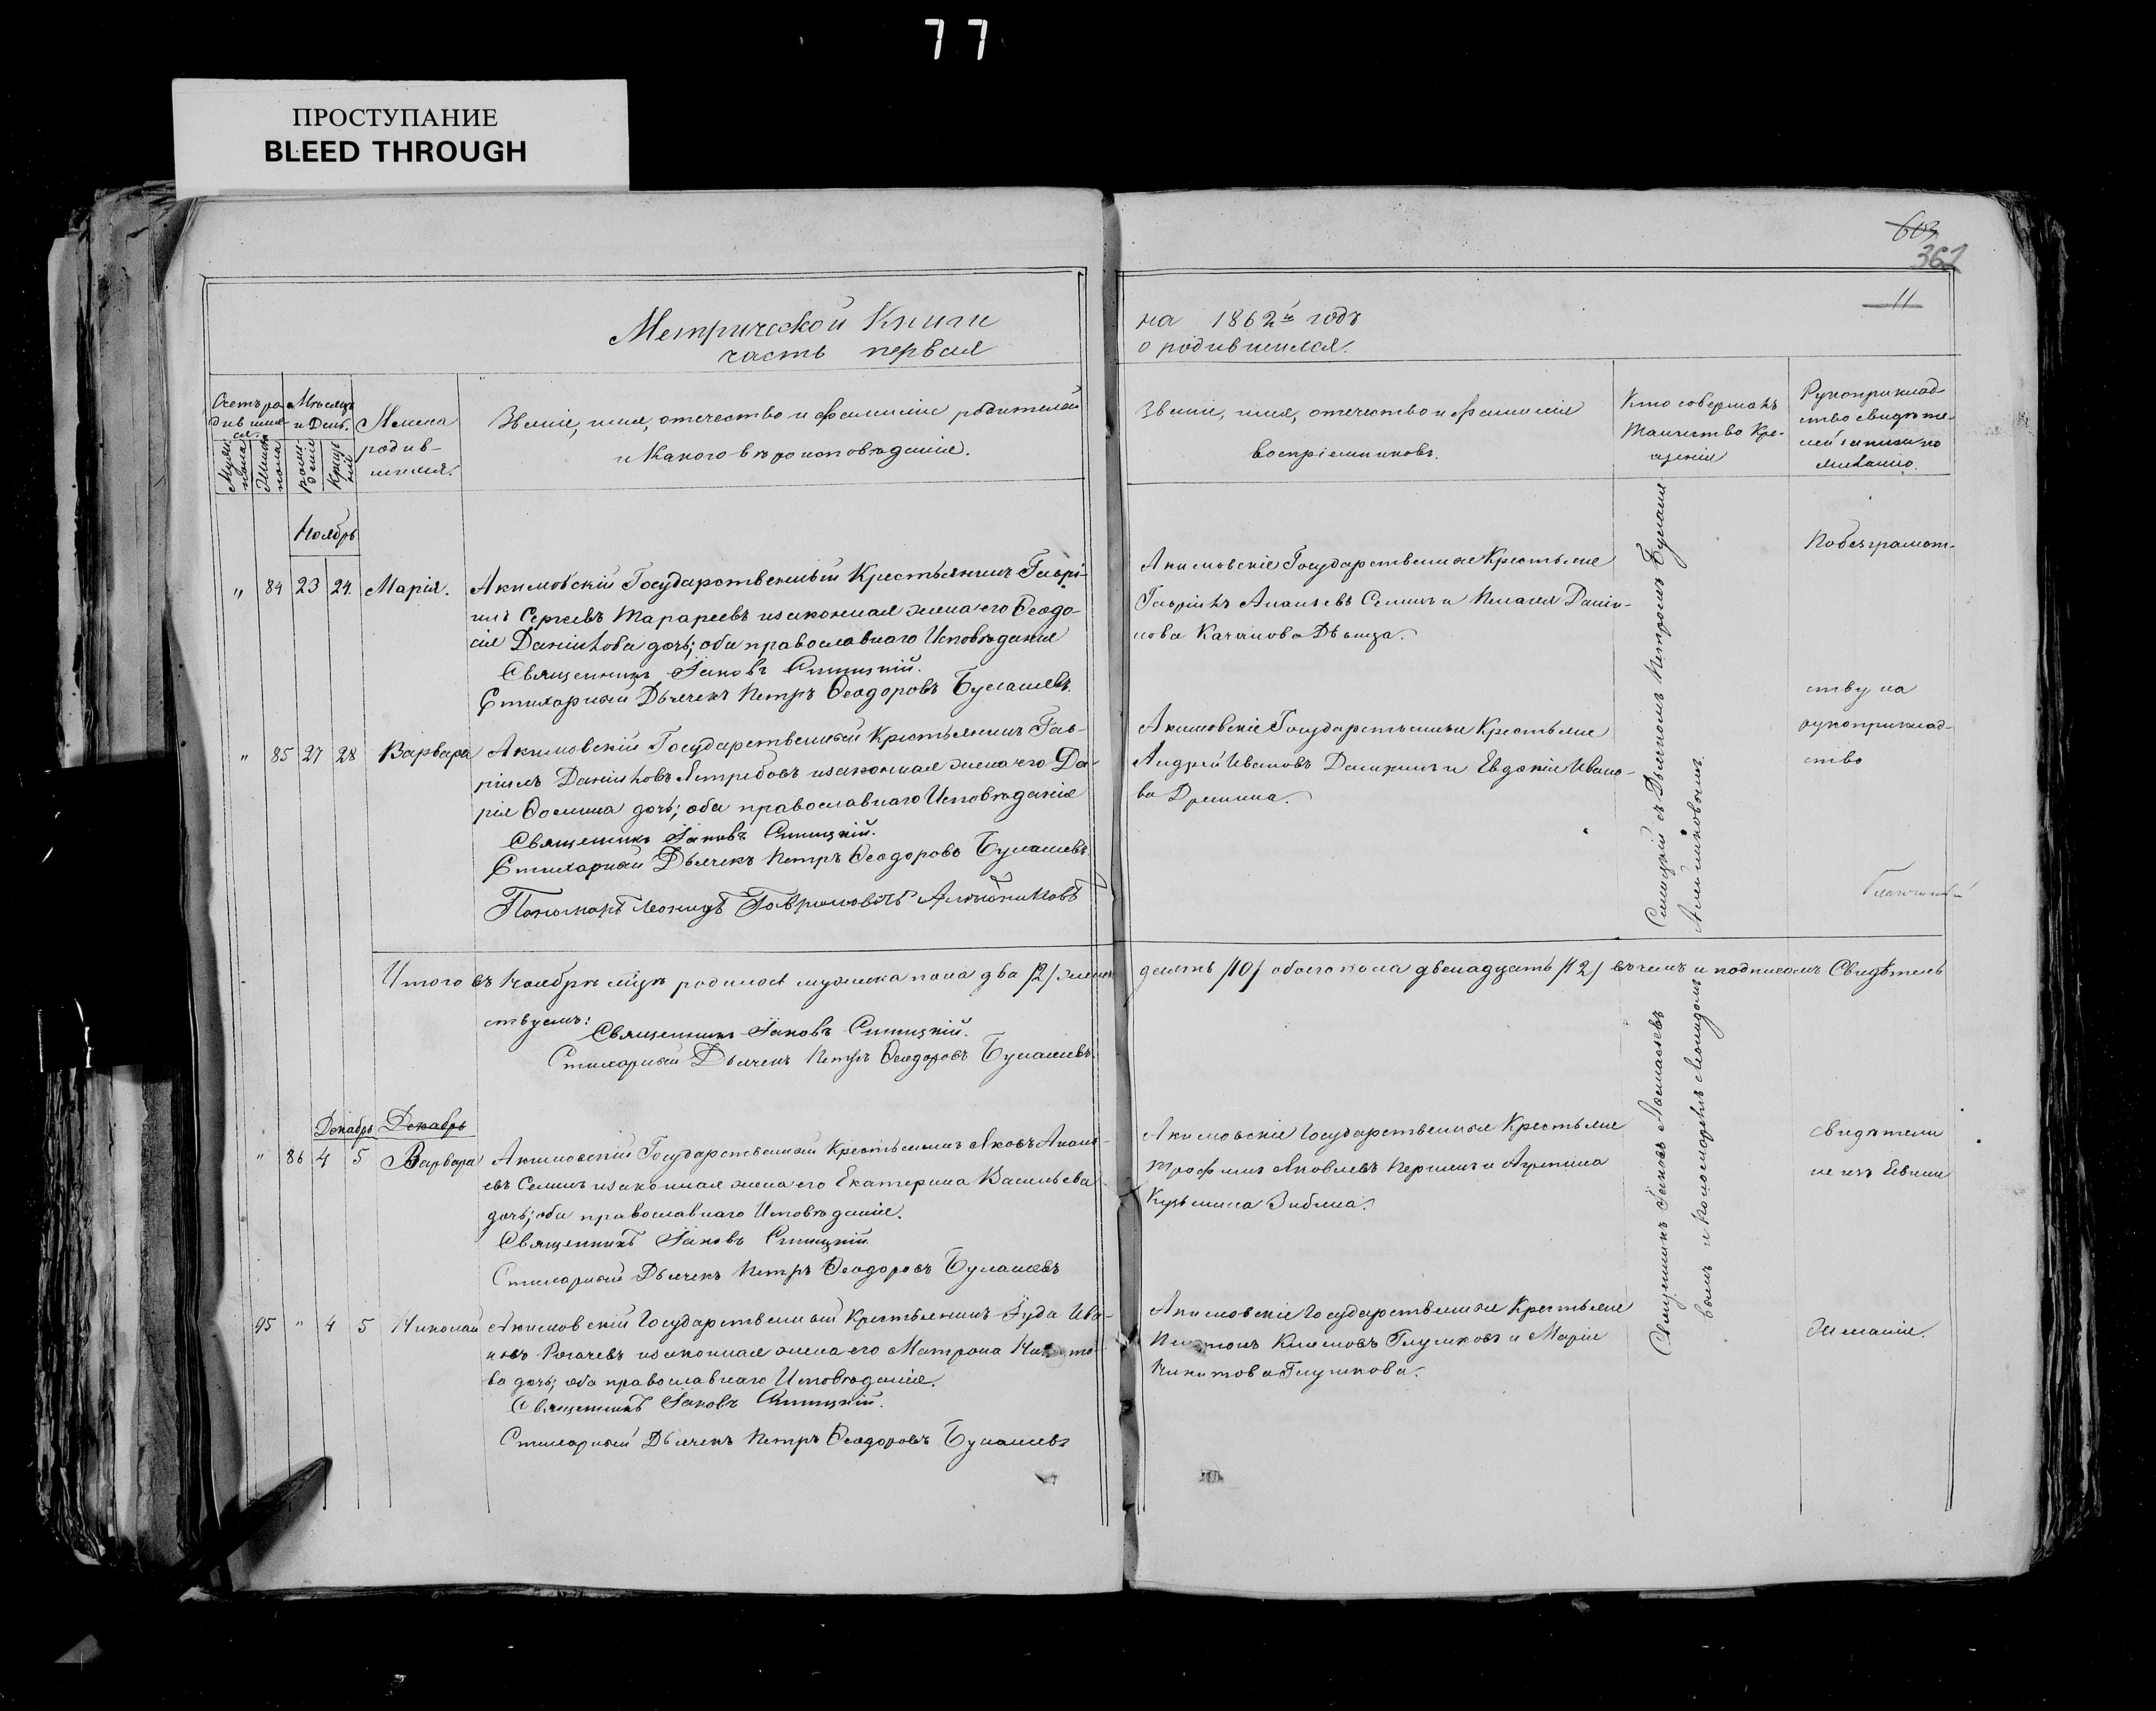 77
ПРОСТУПАНИЕ
BLEED THROUGH
603
362
11
Метрической Книги
часть первая
на 1862й годъ
о родившихся.
Счетъ родившихся.
Мужеска пола
Женска пола
Мѣсяцъ и День.
Рожденія
Крещенія
Имена родив-
шихся.
Званіе, имя, отечество и фамилія родителей
и Какого вѣроисповѣданія.
Званіе, имя, отечество и фамилія
воспріемниковъ.
Кто совершалъ
таинство Кре-
щенія
Рукоприклад-
ство свидѣте-
лей записи по
желанію.
Ноябрь
" 84 23 24. Марія. Акимовскій Государственный Крестьянинъ Гаврі-
илъ Сергѣевъ Тарареевъ и законная жена его Ѳеодо-
сія Даніилова дочь; оба православнаго Исповѣданія
Священникъ Іаковъ Спицкій.
Стихарный Дьячекъ Петръ Ѳеодоровъ Булашевъ.
Акимовскіе Государственные Крестьяне
Гавріилъ Ананьевъ Семинъ и Пелагея Данiи-
лова Дѣвица.
По безграмот-
" 85 27 28 Варвара Акимовскій Государственный Крестьянинъ Гав-
ріилъ Даніиловъ Ястребовъ и законная жена его Да-
рія Ѳомина дочь; оба православнаго Исповѣданія
Священникъ Іаковъ Спицкій.
Стихарный Дьячекъ Петръ Ѳеодоровъ Булашевъ.
Пономарь Леонидъ
Акимовскіе Государственные Крестьяне
Андрей Ивановъ и Евдокія Ивано-
ва
ству на
рукоприклад-
ство
Итого въ Ноябрѣ мцѣ родилось мужеска пола два /2/ женска десять /10/ обоего пола двенадцать /12/ въ чемъ и подписомъ Свидѣтель
ствуемъ:
Священникъ Іаковъ Спицкій.
Стихарный Дьячекъ Петръ Ѳеодоровъ Булашевъ.
Декабрь Декабрь
" 86 4 5 Варвара Акимовскій Государственный Крестьянинъ Яковъ Анань-
евъ Семинъ и законная жена его Екатерина Васильева
дочь; оба православнаго Исповѣданія.
Священникъ Іаковъ Спицкій
Стихарный Дьячекъ Петръ Ѳеодоровъ Булашевъ
Акимовскіе Государственные Крестьяне
Трофимъ Яковлевъ и Агрипина
Кузьмина Зибина.
свидѣтели
не изъявили
95 " 4 5 Николай Акимовскій Государственный Крестьянинъ Іуда Ива-
новъ Рогачевъ и законная жена его Матрона
ва дочь; оба православнаго Исповѣданія.
Священникъ Іаковъ Спицкій.
Стихарный Дьячекъ Петръ Ѳеодоровъ Булашевъ
Акимовскіе Государственные Крестьяне
Глушковъ и Марія
Никитова Глушкова.
желанія.
Священникъ Іаковъ
Спицкій съ Дьячкомъ Петромъ Булаше
вымъ и Пономаремъ Леонидомъ